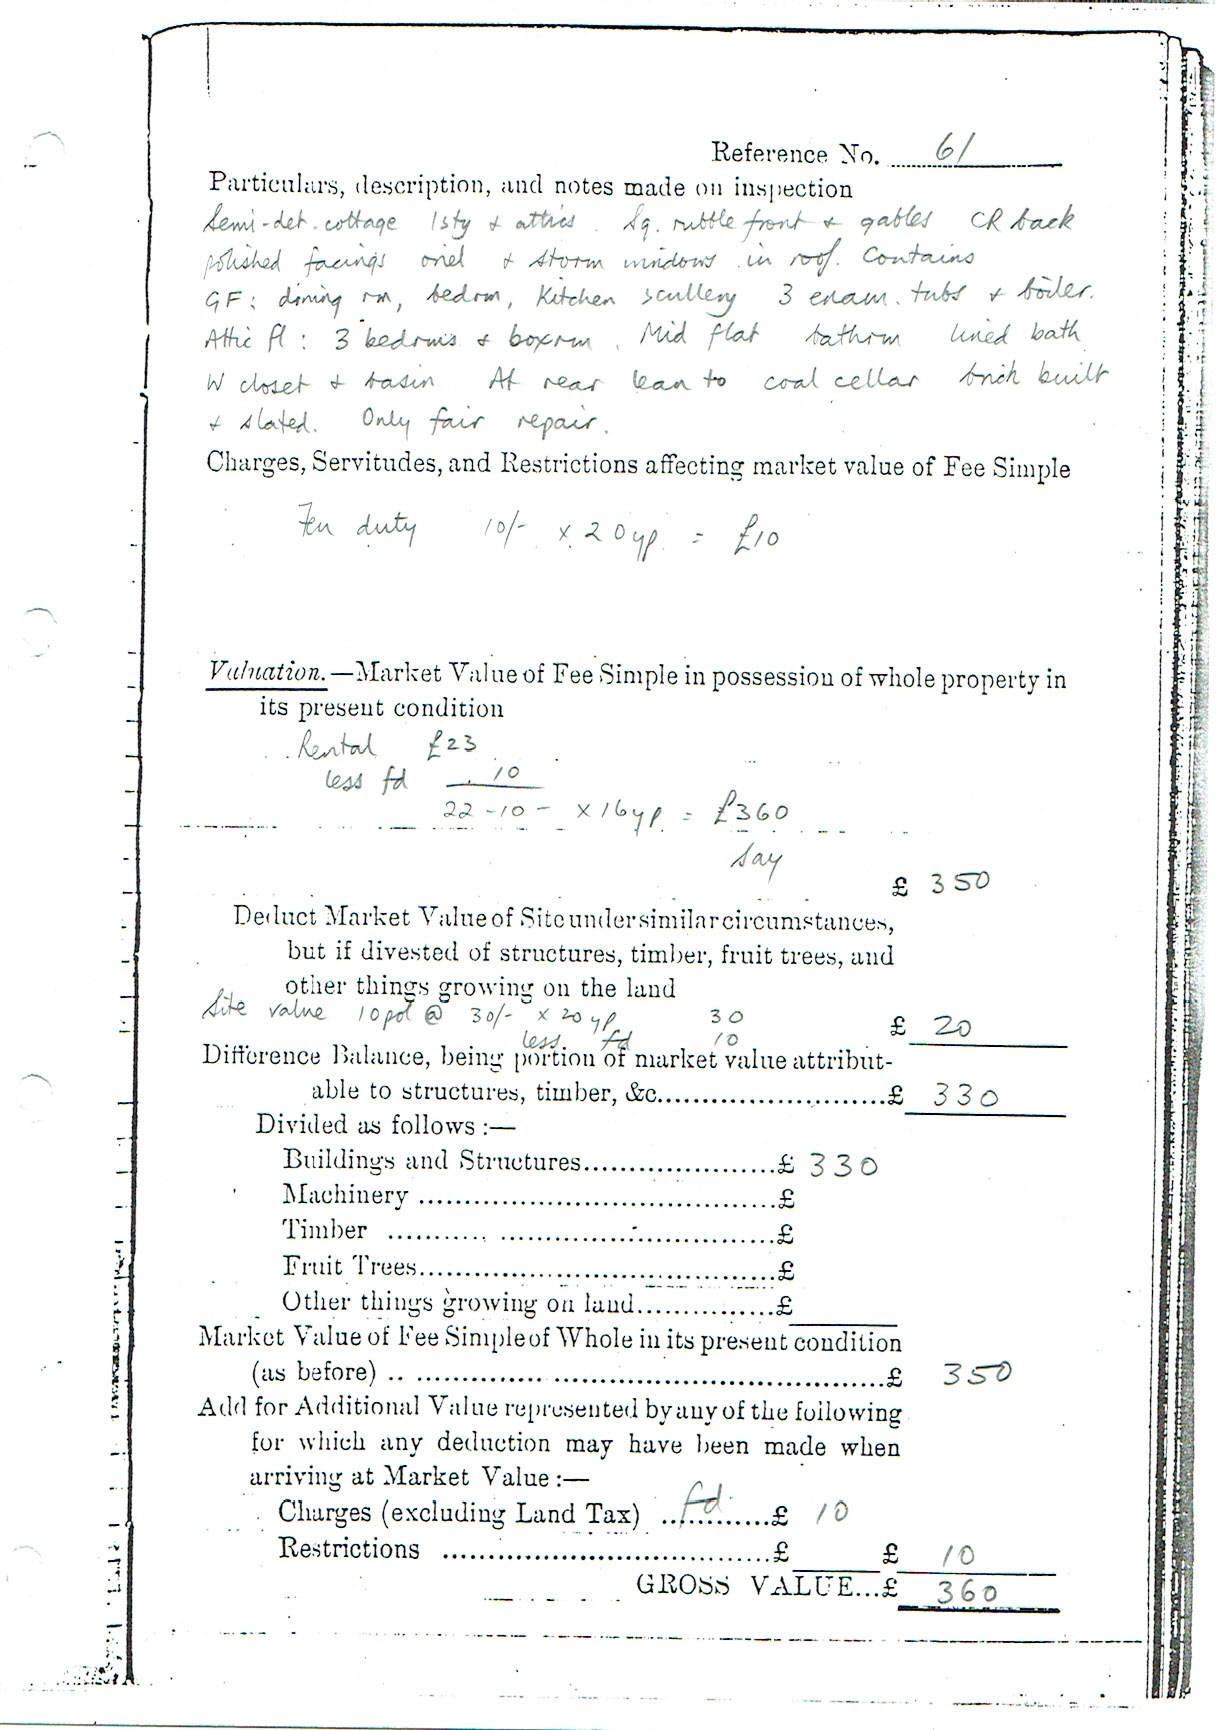 Reference No. 61
Particulars, description, and notes made on inspection
Semi-det. cottage 1sty & attics. Sq. rubble front & gables CR back
polished facings oriel & storm windows in roof. Contains
GF: dining rm, bedrm, Kitchen scullery 3 enam. tubs & boiler.
Attic fl: 3 bedrms & boxrm. Mid flat bathrm lined bath
W closet & basin At rear lean to coal cellar brick built
& slated. Only fair repair.
Charges, Servitudes, and Restrictions affecting market value of Fee Simple
Feu duty 10/- x 20yp. = £10
Valuation.—Market Value of Fee Simple in possession of whole property in
its present condition
Rental £23
less fd . 10
22-10- x 16yp = £360
Say
£ 350
Deduct Market Value of Site under similar circumstances,
but if divested of structures, timber, fruit trees, and
other things growing on the land
Site value 10pol @ 30/- x 20yp 30
£ 20
less fd 10
Difference Balance, being portion of market value attribut-
able to structures, timber, &c........................£ 330
Divided as follows :—
Buildings and Structures......................£ 330
Machinery ........................................£
Timber ........... ...............................£
Fruit Trees........................................£
Other things growing on land...............£
Market Value of Fee Simple of Whole in its present condition
(as before) .. ....................................................£ 350
Add for Additional Value represented by any of the following
for which any deduction may have been made when
arriving at Market Value :—
Charges (excluding Land Tax) ..fd........£ 10
Restrictions .....................................£ £ 10
GROSS VALUE...£ 360